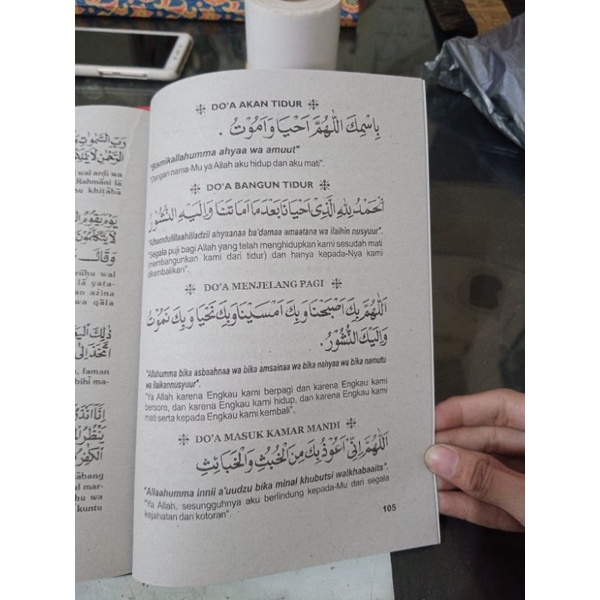 رَبِّ السَّمٰوٰتِ
الرَّحْمٰنِ لَا
wal ardi wa
Rahmâni lâ
hu khitâbâ
يَوْمَ يَقُوْمُ
لَا يَتَكَلَّمُوْنَ
وَقَالَ
rûhu wal
lâ yata-
an ażina
wa qâla
ذٰلِكَ الْيَوْمُ
اتَّخَذَ اِلٰى
faman
bihî ma-
اِنَّآ اَنْذَرْ
يَنْظُرُ الْمَ
الْكٰفِرُ
âbang
mar-
hu wa
kuntu
DO'A AKAN TIDUR
بِاسْمِكَ اللّٰهُمَّ اَحْيَا وَاَمُوْتُ .
"Bismikallahumma ahyaa wa amuut"
"Dengan nama-Mu ya Allah aku hidup dan aku mati".
DO'A BANGUN TIDUR
اَلْحَمْدُ لِلّٰهِ الَّذِىْ اَحْيَانَا بَعْدَمَا اَمَاتَنَا وَاِلَيْهِ النُّشُوْرُ
"Alhamdulillaahilladzii ahyaanaa ba'damaa amaatana wa ilaihin nusyuur".
"Segala puji bagi Allah yang telah menghidupkan kami sesudah mati
(membangunkan kami dari tidur) dan hanya kepada-Nya kami
dikembalikan".
DO'A MENJELANG PAGI
اَللّٰهُمَّ بِكَ اَصْبَحْنَا وَبِكَ اَمْسَيْنَا وَبِكَ نَحْيَا وَبِكَ نَمُوْتُ
وَاِلَيْكَ النُّشُوْرُ.
"Allahumma bika asbaahnaa wa bika amsainaa wa bika nahyaa wa bika namutu
wa ilaikannusyuur".
"Ya Allah karena Engkau kami berpagi dan karena Engkau kami
bersore, dan karena Engkau kami hidup, dan karena Engkau kami
mati serta kepada Engkau kami kembali".
DO'A MASUK KAMAR MANDI
اَللّٰهُمَّ اِنِّىْ اَعُوْذُ بِكَ مِنَ الْخُبُثِ وَالْخَبَائِثِ
"Allaahumma innii a'uudzu bika minal khubutsi walkhabaaits".
"Ya Allah, sesungguhnya aku berlindung kepada-Mu dari segala
kejahatan dan kotoran".
105